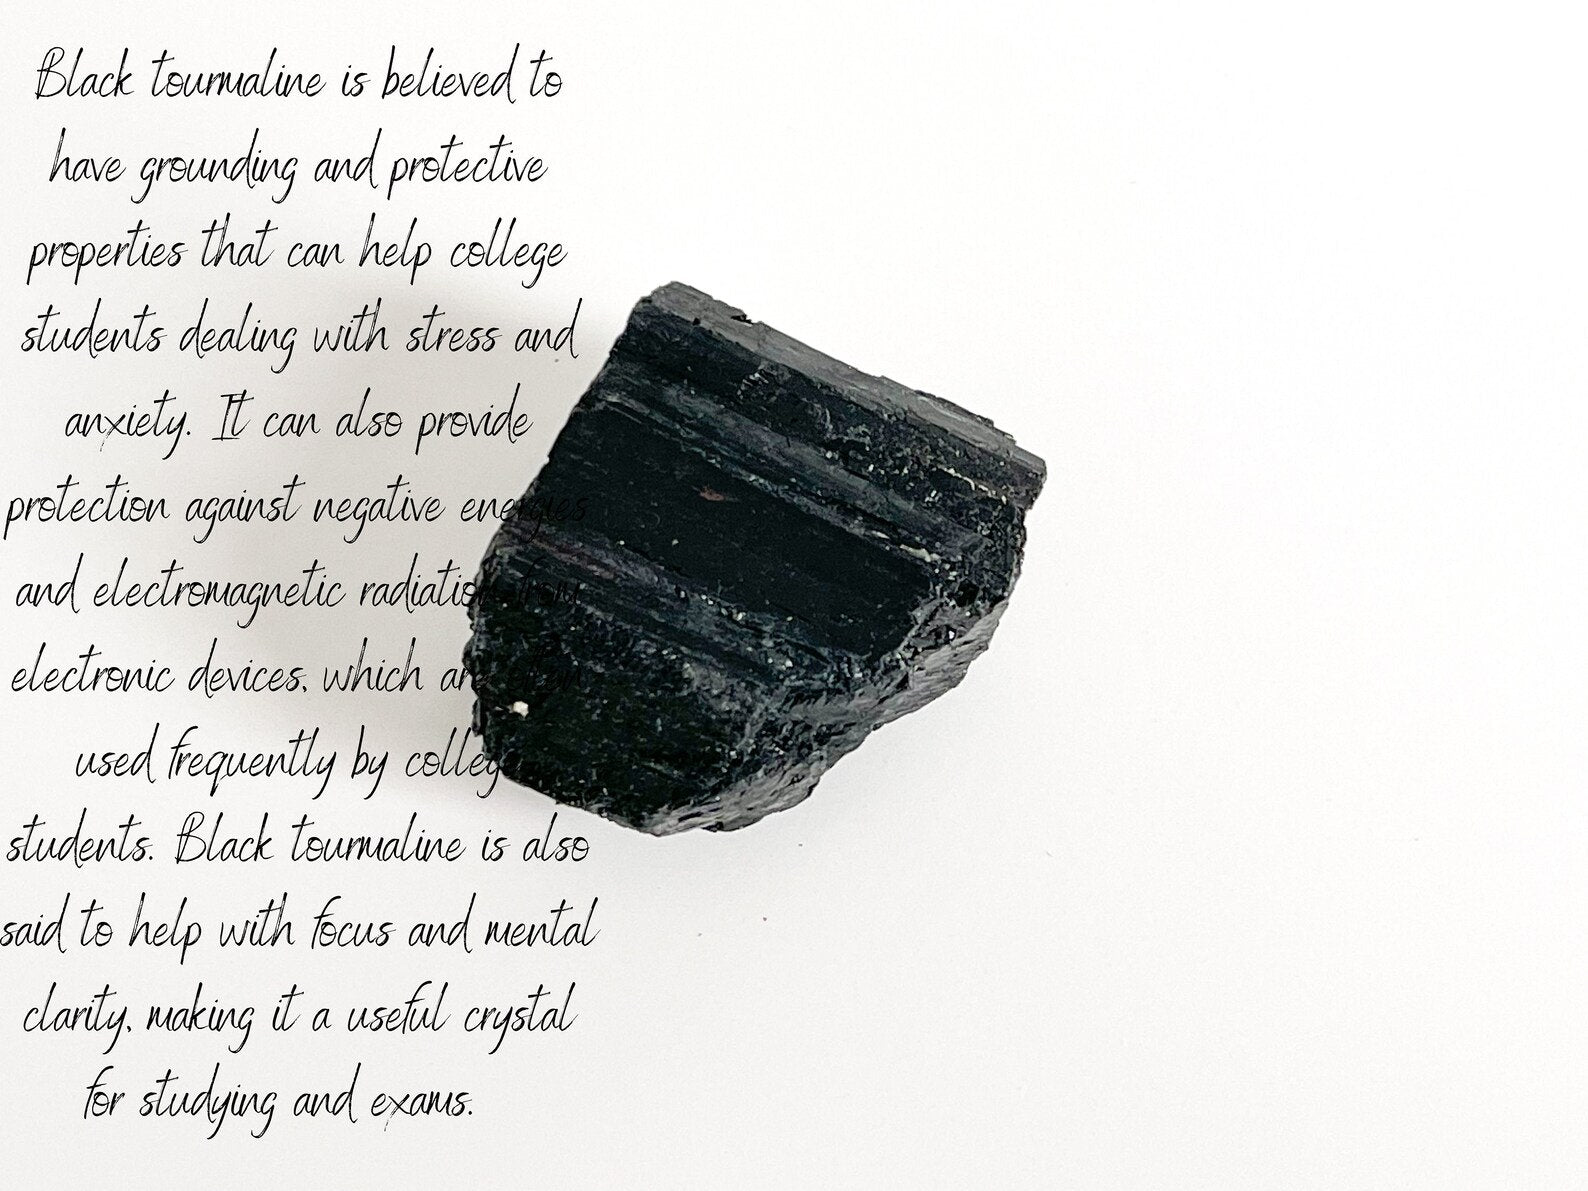 Black tourmaline is believed to
have grounding and protective
properties that can help college
students dealing with stress and
anxiety. It can also provide
protection against negative energies
and electromagnetic radiation from
electronic devices, which are often
used frequently by college
students. Black tourmaline is also
said to help with focus and mental
clarity, making it a useful crystal
for studying and exams.